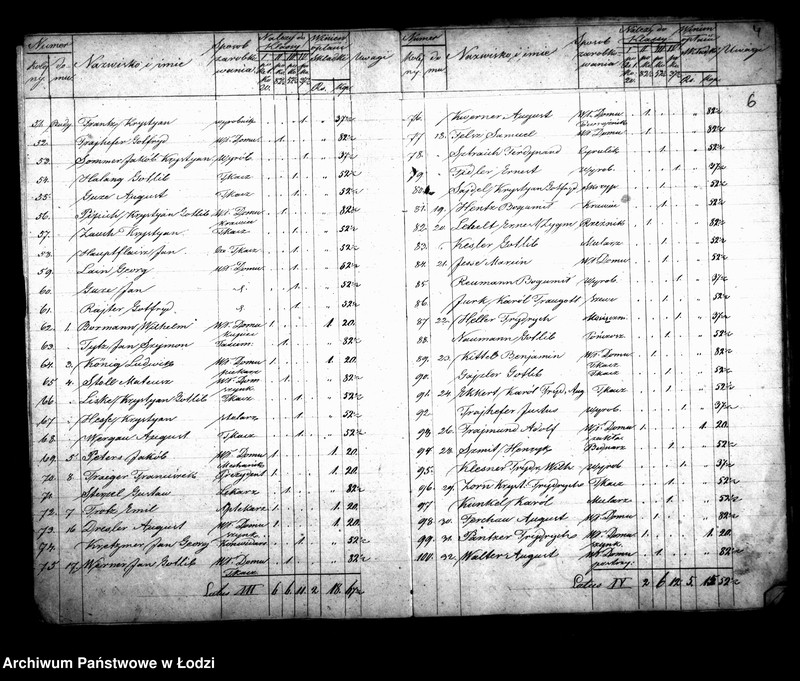 6
Numer
Nazwisko i imie
Sposób zarobkowania
Należy do Klassy
Winien opłacić Składki
Uwagi
Rs. Kop.
51. Frantz Krystyan wyrobnik 1 37½
52. Trajhefer Gotfryd Wł. Domu 1 82½
53. Sommer Jakób Krystyan Wyrob 1 37½
54. Halang Gotlib Tkacz 1 52½
55. Guze August Tkacz 1 52½
56. Krystyan Gotlib Wł. Domu 1 82½
57. Zauch Krystyan Tkacz 1 52½
58. Hauptfleisz Jan Tkacz 1 52½
59. Georg Wł. Domu 1
60. Guze Jan 1 52½
61. Rajter Gotfryd 1 52½
62. 1. Bormann Wilhelm Wł. Domu kupiec 1 1 20
63. Tytz Jan Szymon 1 52½
64. 3. König Ludwik Wł. Domu piekarz 1 1 20
65. 4. Stoll Mateusz Wł. Dom szynk 1 82½
66. Liske Krystyan Gotlib Tkacz 1 52½
67. Hesse Krystyan Malarz 1 52½
68. Wergau August Tkacz 1 52½
69. 5. Peters Jakób Wł. Domu Mechanik 1 1 20
70. 8. Traeger Franciszek Prezydent 1 1 20
Gustaw Lekarz 1 82½
72. 7. Trotz Emil Aptekarz 1 1 20
73. 16. Dresler August Wł. Domu szynk 1 1 20
74. Kretzmer Jan Georg 1 52½
75. 17. Werner Jan Gotlib Wł. Domu Tkacz 1 82½
Latus III 6 6 11 2 18 67½
Numer
Nazwisko i imie
Sposób zarobkowania
Należy do Klassy
Winien opłacić Składki
Uwagi
Rs. Kop.
76. Kwerner August Wł. Domu 1 82½
77. 18. Felsz Samuel Wł. Domu 1 82½
78. Sztraich Ferdynand Cyrulik 1 52½
79. Fidler Ernest Wyrob. 1 37½
80. Sajdel Krystyan Gotfryd 1 52½
81. 19. Hentz Bogumił 1 52½
82. 20. Ernest Zygm Rzeźnik 1 82½
83. Kesler Gotlib Mularz 1 52½
84. 21. Jesse Marcin Wł. Domu 1 52½
85. Reumann Bogumił Wyrob. 1 37½
86. Jurk Karól Traugott 1 52½
87. 22. Heller Frydrych 1 37½
88. Naumann Gotlib Pończosz. 1 52½
89. 23. Kittel Benjamin Wł. Domu Tkacz 1 82½
90. Gajzler Gotlib Tkacz 1 52½
91. 24. Ekkert Karól Fryd. Aug. Tkacz 1 52½
92. Trajhefer Justus Wyrob. 1 37½
93. 26. Frajmund Adolf Wł. Domu 1 1 20
94. 28. Szmit Henryk Bednarz 1 52½
95. Klesner Frydr. Wilh. Wyrob 1 37½
96. 29. Zorn Kryst. Frydrych Tkacz 1 52½
97. Kunkel Karól Mularz 1 52½
98. 30. Ferchau August Wł. Domu 1 82½
99. 31. Pantzer Frydrych Wł. Domu szynk 1 1 20
100. 32. Walter August Wł. Domu 1 82½
Latus IV 2 6 12 5 15 52½
Archiwum Państwowe w Łodzi